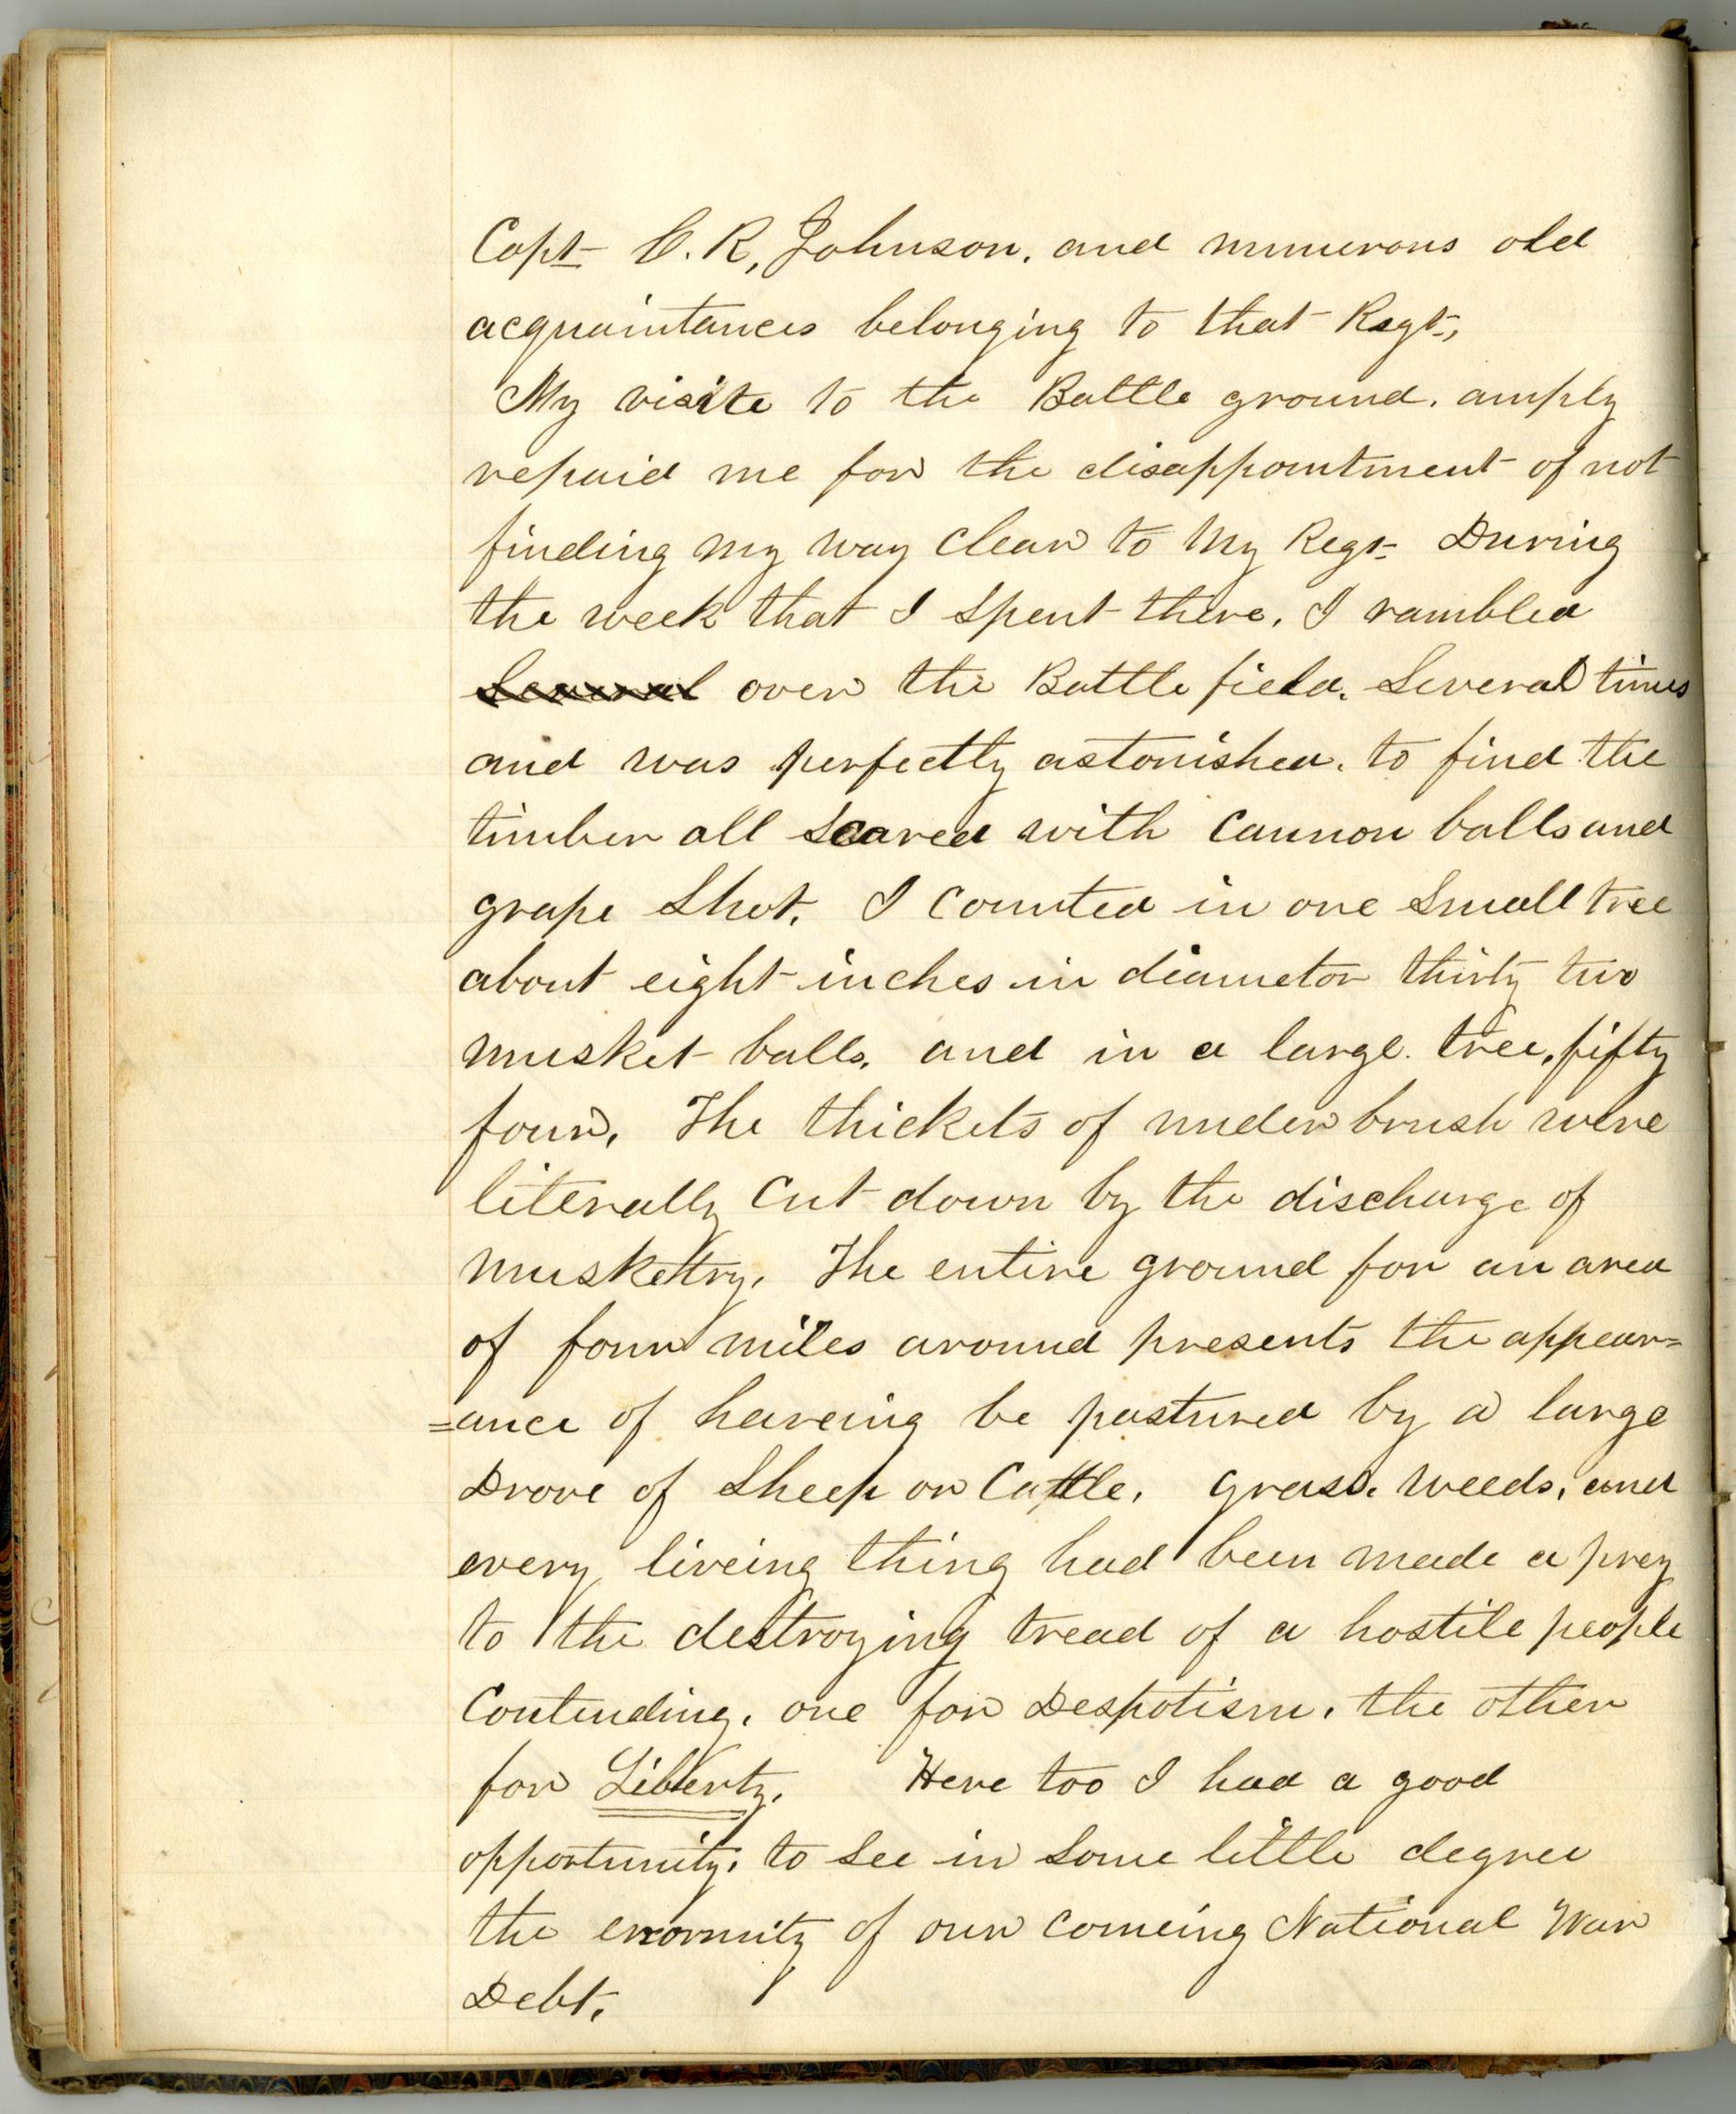 Capt C. R, Johnson, and numerous old
acquaintances belonging to that Regt,
My visite to the Battle ground, amply
repaid me for the disappointment of not
finding my way clear to My Regt- During
the week that I spent there, I rambled
Several over the Battle field, Several times
and was perfectly astonished, to find the
timber all scared with cannon balls and
grape shot, I counted in one small tree
about eight inches in diametor thirty two
musket balls, and in a large tree, fifty
four, The thickets of under brush were
literally cut down by the discharge of
muskettry, The entire ground for an area
of four miles around presents the appear=
=ance of haveing be pastured by a large
Drove of Sheep or Cattle, grass, weeds, and
every liveing thing had been made a prey
to the destroying tread of a hostile people
Contending, one for Despotism, the other
for Liberty, Here too I had a good
opportunity, to see in some little degree
the enormity of our comeing National War
Debt,